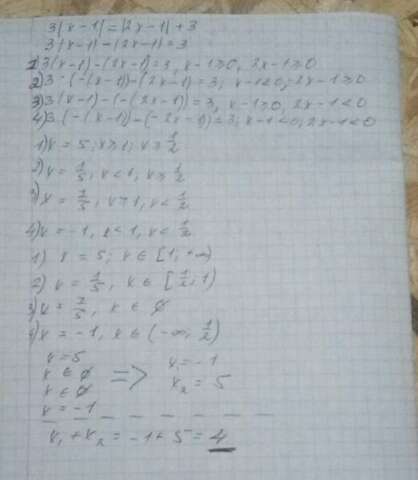 3|x-1| = |2x-1| + 3
3|x-1| - |2x-1| = 3
1) 3(x-1) - (2x-1) = 3, x-1≥0, 2x-1≥0
2) 3·(-(x-1)) - (2x-1) = 3, x-1<0, 2x-1≥0
3) 3(x-1) - (-(2x-1)) = 3, x-1≥0, 2x-1<0
4) 3·(-(x-1)) - (-2x-1) = 3, x-1<0, 2x-1<0
1) x = 5; x≥1; x≥1/2
2) x = 1/5, x<1, x≥1/2
3) x = 7/5, x≥1, x<1/2
4) x = -1, x<1, x<1/2
1) x = 5; x ∈ [1; +∞)
2) x = 1/5, x ∈ [1/2; 1)
3) x = 7/5, x ∈ ∅
4) x = -1, x ∈ (-∞, 1/2)
x = 5
x ∈ ∅ => x₁ = -1
x ∈ ∅ x₂ = 5
x = -1
x₁ + x₂ = -1 + 5 = 4